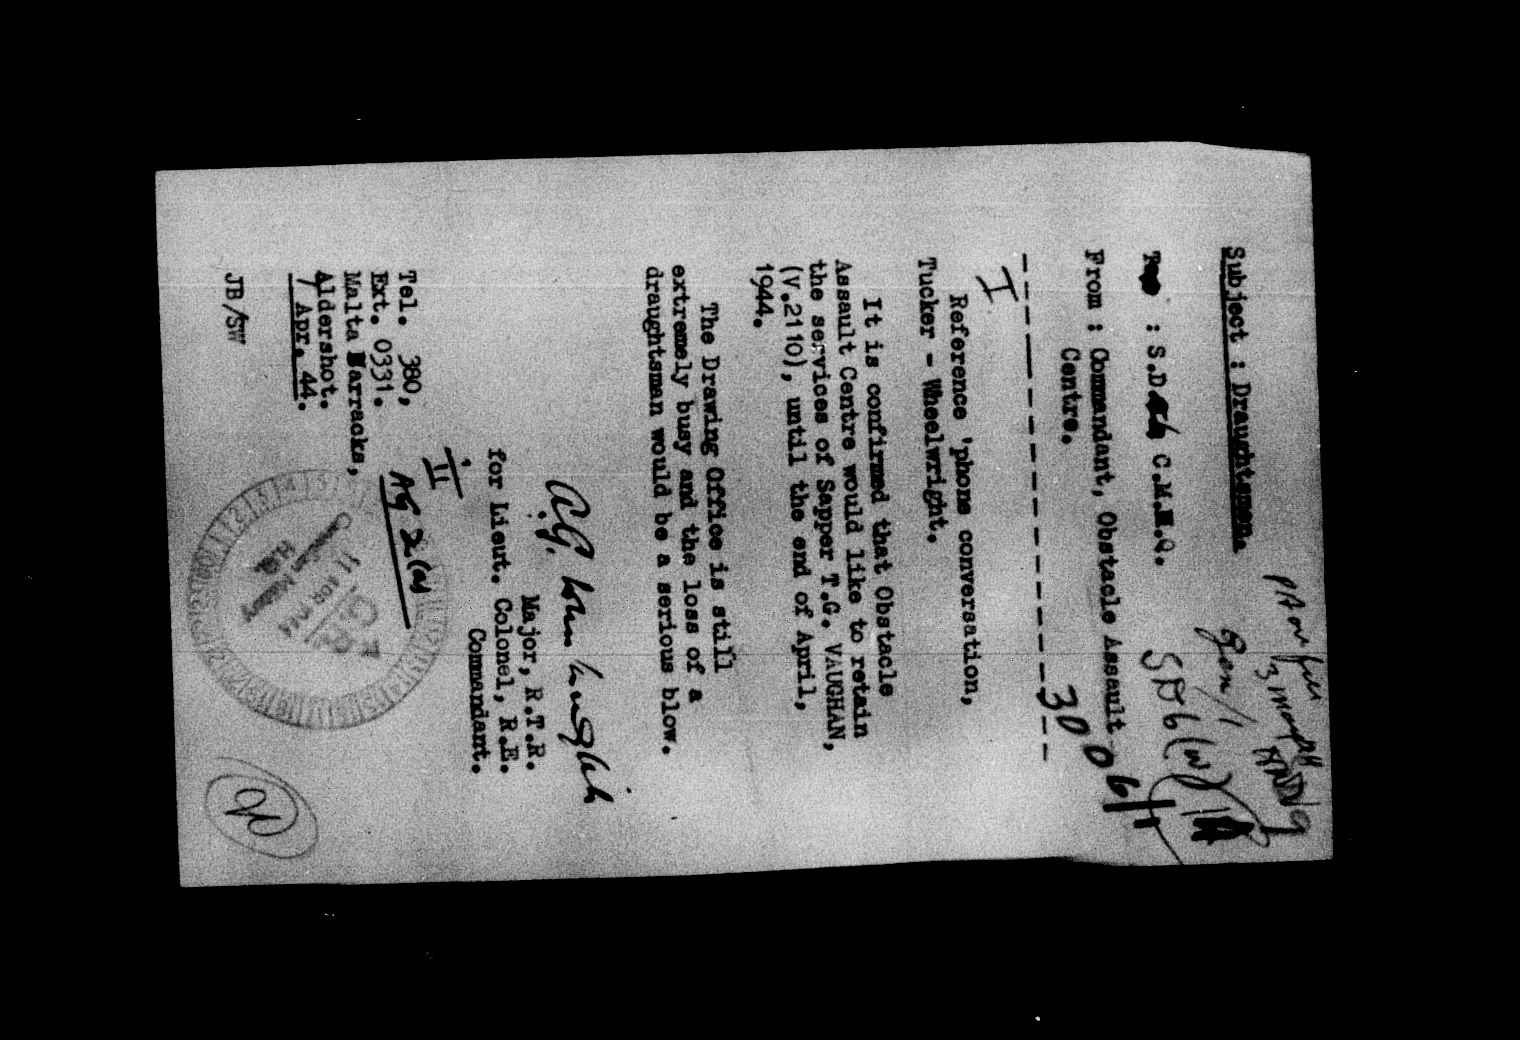 Subject : Draughtsmen.
: S.D. C.M.H.Q.
From : Commandant, Obstacle Assault
Centre.
SD6(W)
3006
I
Reference 'phone conversation,
Tucker - Wheelwright.
It is confirmed that Obstacle
Assault Centre would like to retain
the services of Sapper T.G. VAUGHAN,
(V.2110), until the end of April,
1944.
The Drawing Office is still
extremely busy and the loss of a
draughtsman would be a serious blow.
Major, R.T.R.
for Lieut. Colonel, R.E.
Commandant.
II
AG 2(a)
Tel. 380,
Ext. 0331.
Malta Barracks,
Aldershot.
7 Apr. 44.
JB/SW